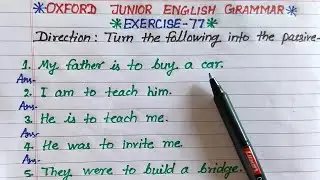 *OXFORD JUNIOR ENGLISH GRAMMAR*
*EXERCISE-77*
Direction: Turn the following into the passive-
1. My father is to buy a car.
Ans-
2. I am to teach him.
Ans-
3. He is to teach me.
Ans-
4. He was to invite me.
Ans-
5. They were to build a bridge.